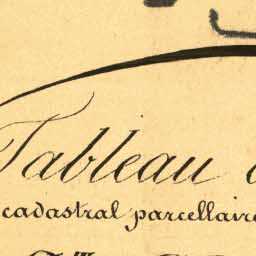 Tableau
cadastral parcellaire